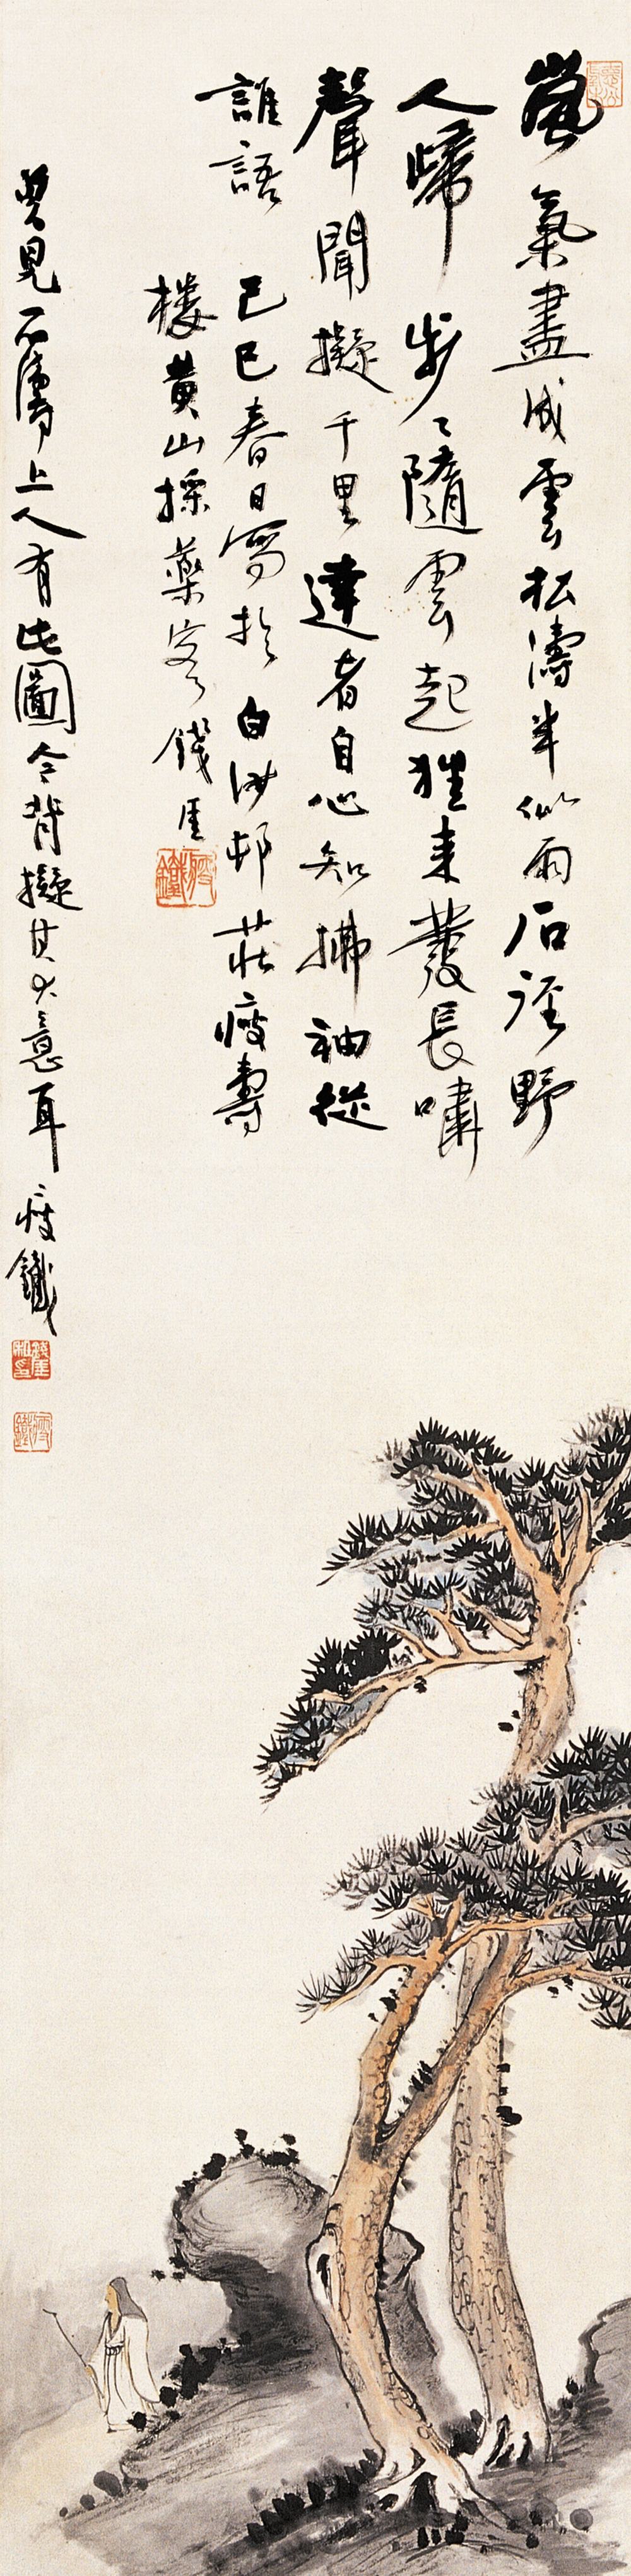 嵐氣盡成雲松濤半似雨石徑野
人歸步々隨雲起獨來發長嘯
聲聞擬千里達者自心知拂袖從
誰語
己巳春日寫於白沙邨莊瘦壽
樓黃山採藥客錢厓
瘦鐵
曾見石濤上人有此圖今背擬其大意耳瘦鐵
瘦鐵